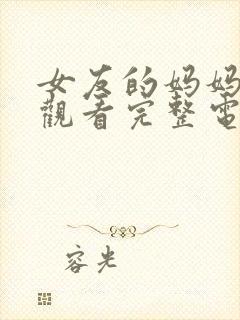 女友的妈妈
觀看完整電
容光